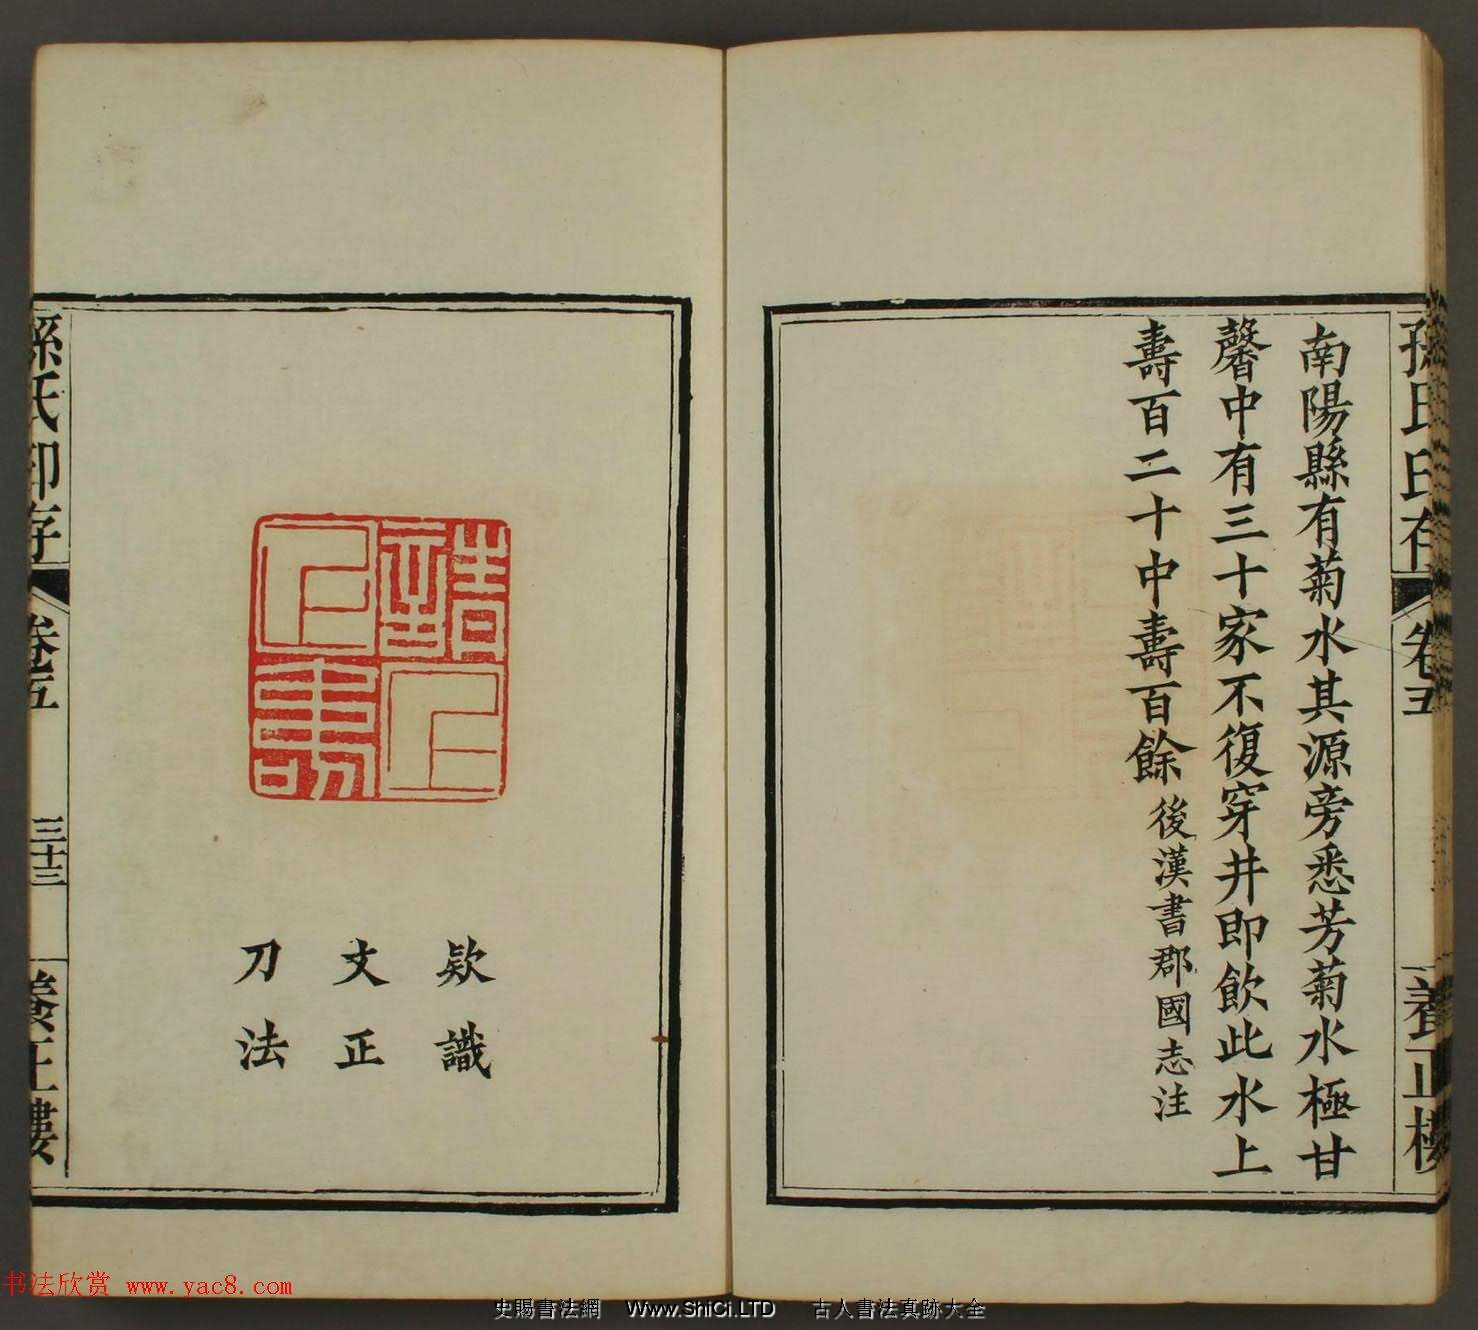 孫氏印存
卷五
養正樓
南陽縣有菊水其源旁悉芳菊水極甘
馨中有三十家不復穿井即飲此水上
壽百二十中壽百餘後漢書郡國志注
款識
文正
刀法
孫氏印存
卷五
三十三
養正樓
书法欣赏 www.yac8.com
史賜書法網 Www.ShiCi.LTD 古人書法真跡大全